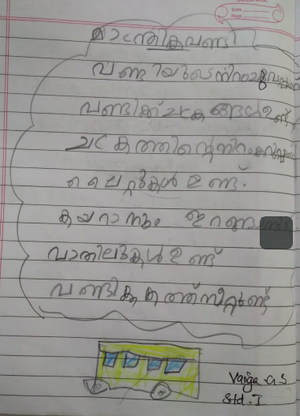 മാന്ത്രികവണ്ടി
വണ്ടിയുടെ നിറം
വണ്ടിക്ക് ചക്രങ്ങൾ ഉണ്ട്
ചക്രത്തിന്റെ നിറം കറുപ്പ്
ലൈറ്റുകൾ ഉണ്ട്.
കയറാനും ഇറങ്ങാനും
വാതിലുകൾ ഉണ്ട്
വണ്ടിക്കകത്ത് സീറ്റുണ്ട്
Vaiga. G. S
Std. I